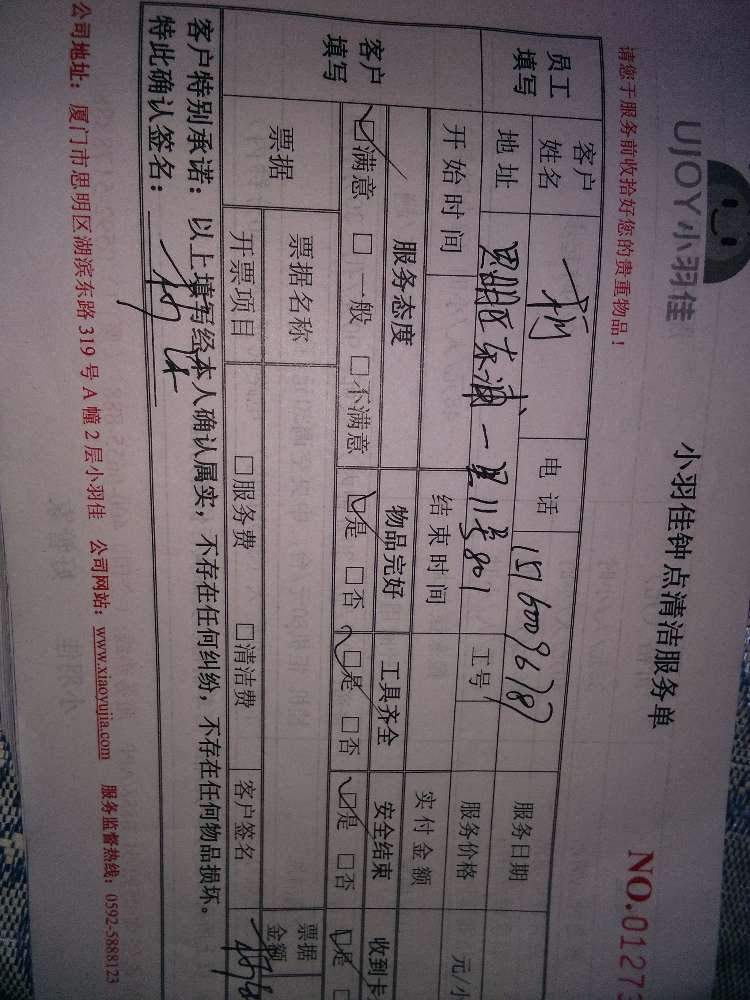 UJOY小羽佳
小羽佳钟点清洁服务单
NO.0127
请您于服务前收拾好您的贵重物品！
员工填写 客户姓名 电话 15160096787 服务日期
地址 思明区东浦一里11号801 工号 服务价格 元/小
开始时间 结束时间 实付金额
客户填写 服务态度 物品完好 工具齐全 安全结束 收到卡
☑满意 □一般 □不满意 ☑是 □否 ☑是 □否 ☑是 □否 ☑是
票据 票据名称 票据金额
开票项目 □服务费 □清洁费 客户签名
客户特别承诺：以上填写经本人确认属实，不存在任何纠纷，不存在任何物品损坏。
特此确认签名：
公司地址：厦门市思明区湖滨东路 319 号 A 幢 2 层小羽佳 公司网站：www.xiaoyujia.com 服务监督热线：0592-5888123